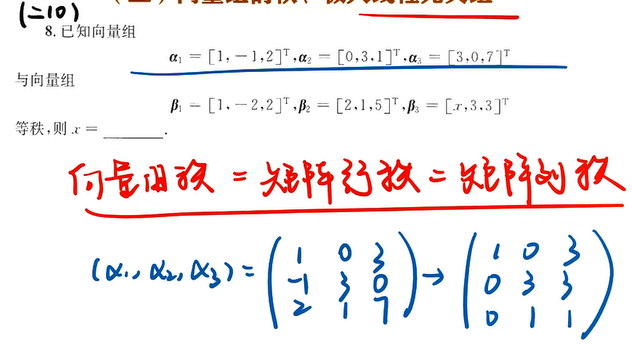 (二10) (二) 向量组的秩、极大线性无关组
8. 已知向量组
α₁ = [1, -1, 2]ᵀ, α₂ = [0, 3, 1]ᵀ, α₃ = [3, 0, 7]ᵀ
与向量组
β₁ = [1, -2, 2]ᵀ, β₂ = [2, 1, 5]ᵀ, β₃ = [x, 3, 3]ᵀ
等秩, 则 x = ______.
向量的秩 = 矩阵行秩 = 矩阵列秩
(α₁, α₂, α₃) = ( 1 0 3 ; -1 3 0 ; 2 1 7 ) → ( 1 0 3 ; 0 3 3 ; 0 1 1 )